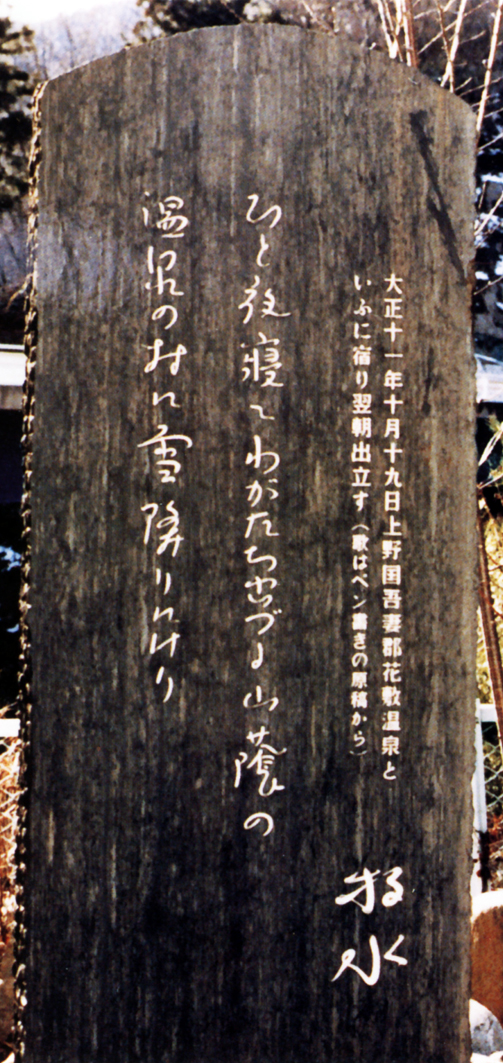 大正十一年十月十九日上野国吾妻郡花敷温泉と
いふに宿り翌朝出立す（歌はペン書きの原稿から）
牧水
ひと夜寝てわがたち出づる山蔭の
温泉の村に雪降りにけり